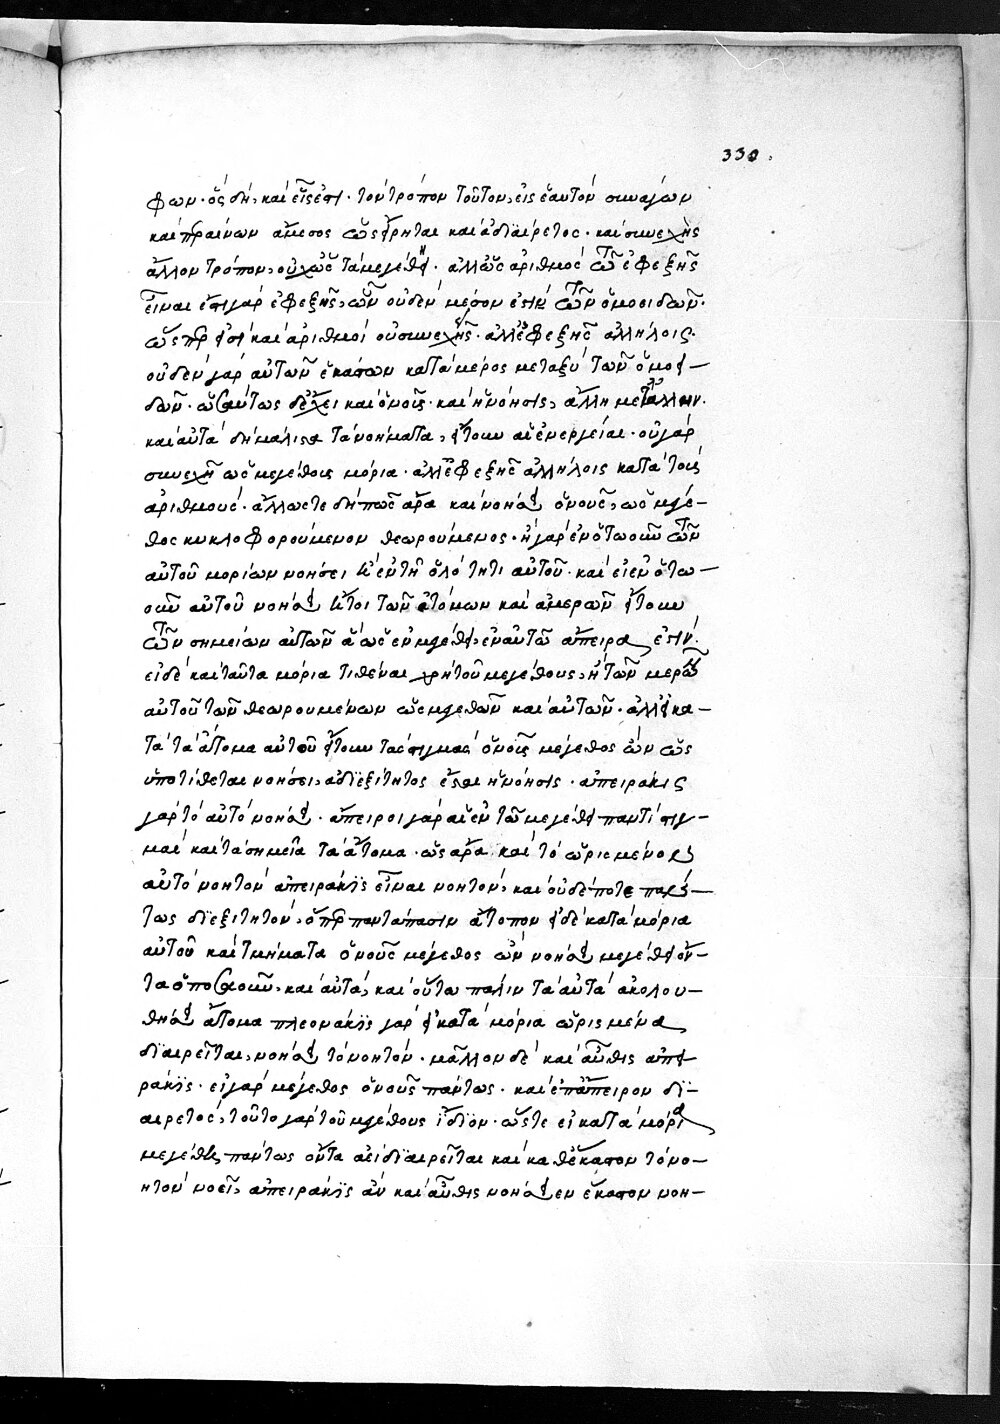 330.
φων· ὅς δὴ, καὶ εἷς ἐστι· τὸν τρόπον τοῦτον, εἰς ἑαυτὸν συναγων
καὶ ἄμεσος ὡς εἴρηται καὶ ἀδιαίρετος· καὶ συνεχὴς
ἄλλον τρόπον, οὐχ ὡς τὰ μεγέθη· ἀλλ' ὡς ἀριθμὸς τῶν ἐφεξῆς
εἶναι ἔστι γὰρ ἐφεξῆς, ὧν οὐδὲν μέσον ἐστὶ τῶν ὁμοειδῶν·
ὥσπερ εἰσὶ καὶ ἀριθμοὶ οὐ συνεχῆς· ἀλλ' ἐφεξῆς ἀλλήλοις·
οὐδὲν γὰρ αὐτῶν ἑκάστων κατὰ μέρος μεταξὺ τῶν ὁμοει–
δῶν· ὡσαύτως δὲ ἔχει καὶ ὁ νοῦς· καὶ ἡ νόησις, ἄλλη μετ' ἄλλην·
καὶ αὐτὰ δὴ μάλιστα τὰ νοήματα, εἴτουν αἱ ἐνέργειαι· οὐ γὰρ
συνεχῆ ὡς μεγέθους μόρια· ἀλλ' ἐφεξῆς ἀλλήλοις κατὰ τοὺς
ἀριθμούς· ἄλλως τε δὴ πῶς ἄρα καὶ νοήσει ὁ νοῦς, ὡς μέγε–
θος κυκλοφορούμενον θεωρούμενος· ἢ γὰρ ἐν ὁτῳοῦν τῶν
αὐτοῦ μορίων νοήσει ἢ ἐν τῇ ὁλότητι αὐτοῦ· καὶ εἰ ἐν ὁτῳ–
οῦν αὐτοῦ νοήσει ἤτοι τῶν ἀτόμων καὶ ἀμερῶν εἴτουν
τῶν σημείων αὐτῶν ἃ ὡς ἐν μεγέθει, ἐν αὐτῷ ἄπειρα ἐστὶν·
εἰ δὲ καὶ ταῦτα μόρια τιθέναι χρὴ τοῦ μεγέθους, ἢ τῶν μερῶν
αὐτοῦ τῶν θεωρουμένων ὡς μεγεθῶν καὶ αὐτῶν· ἀλλ' εἰ κα–
τὰ τὰ ἄτομα αὐτοῦ εἴτουν τὰς στιγμὰς ὁ νοῦς μέγεθος ὢν ὡς
ὑποτίθεται νοήσει, ἀδιεξίτητος ἔσται ἡ νόησις· ἀπειράκις
γὰρ τὸ αὐτὸ νοήσει· ἄπειροι γὰρ αἱ ἐν τῷ μεγέθει παντὶ στιγ–
μαὶ καὶ τὰ σημεῖα τὰ ἄτομα· ὡς ἄρα καὶ τὸ ὡρισμένον
αὐτὸ νοητὸν ἀπειράκις εἶναι νοητὸν, καὶ οὐδέποτε παν–
τως διεξιτητὸν, ὅπερ παντάπασιν ἄτοπον εἰ δὲ κατὰ μόρια
αὐτοῦ καὶ τμήματα ὁ νοῦς μέγεθος ὢν νοήσει μεγέθει ὄν–
τα ὁποσαοῦν, καὶ αὐτὰ, καὶ οὕτω πάλιν τὰ αὐτὰ ἀκολου–
θήσει ἄτομα πλεονάκις γὰρ εἰ κατὰ μόρια ὡρισμένα
διαιρεῖται, νοήσει τὸ νοητὸν· μᾶλλον δὲ καὶ αὖθις ἀπει
ράκις· εἰ γὰρ μέγεθος ὁ νοῦς πάντως· καὶ ἐπ' ἄπειρον δι–
αιρετός, τοῦτο γὰρ τοῦ μεγέθους ἴδιον· ὥστε εἰ κατὰ μόρια
μεγέθους πάντως ὄντα ἀεὶ διαιρεῖται καὶ καθ' ἕκαστον τὸ νο–
ητὸν νοεῖ, ἀπειράκις ἂν καὶ αὖθις νοήσει ἐν ἕκαστον νοη–